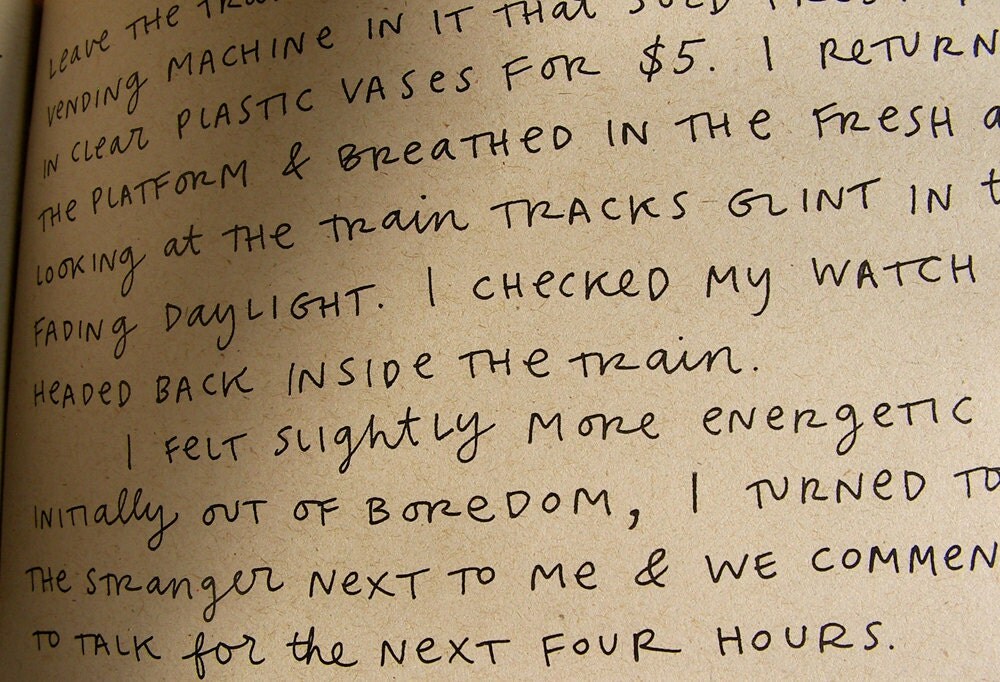 LEAVE THE
VENDING MACHINE IN IT THAT SOLD
IN CLEAR PLASTIC VASES FOR $5. I RETURN
THE PLATFORM & BREATHED IN THE FRESH a
LOOKING at THE train TRACKS GLINT IN t
FADING DAYLIGHT. I CHECKED MY WATCH
HEADED BACK INSIDE THE train.
I FELT slightly MORE ENERGETIC
INITIally OUT OF BOREDOM, I TURNED TO
THE STRanger NEXT TO ME & WE COMMEN
TO TALK for the NEXT FOUR HOURS.